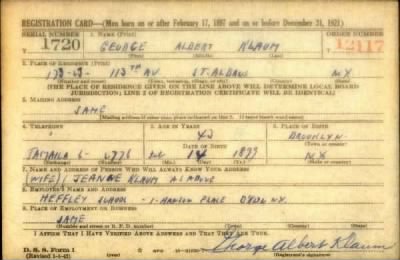 REGISTRATION CARD—(Men born on or after February 17, 1897 and on or before December 31, 1921)
SERIAL NUMBER 1. NAME (Print) ORDER NUMBER
1720 GEORGE ALBERT KLAUM 12117
(First) (Middle) (Last)
2. PLACE OF RESIDENCE (Print)
113TH AV. ST. ALBANS N.Y.
(Number and street) (Town, township, village, or city) (County) (State)
[THE PLACE OF RESIDENCE GIVEN ON THE LINE ABOVE WILL DETERMINE LOCAL BOARD
JURISDICTION; LINE 2 OF REGISTRATION CERTIFICATE WILL BE IDENTICAL]
3. MAILING ADDRESS
SAME
[Mailing address if other than place indicated on line 2. If same insert word same]
4. TELEPHONE 5. AGE IN YEARS 6. PLACE OF BIRTH
43 BROOKLYN
DATE OF BIRTH
JAMAICA 6- 2776 14 1899 N.Y.
7. NAME AND ADDRESS OF PERSON WHO WILL ALWAYS KNOW YOUR ADDRESS
(WIFE) JEANNE KLAUM AS ABOVE
8. EMPLOYER'S NAME AND ADDRESS
HEFFLEY SCHOOL 1- HANSON PLACE BKLYN N.Y.
9. PLACE OF EMPLOYMENT OR BUSINESS
SAME
(Number and street or R. F. D. number) (Town) (County) (State)
I AFFIRM THAT I HAVE VERIFIED ABOVE ANSWERS AND THAT THEY ARE TRUE.
D. S. S. Form 1
George Albert Klaum